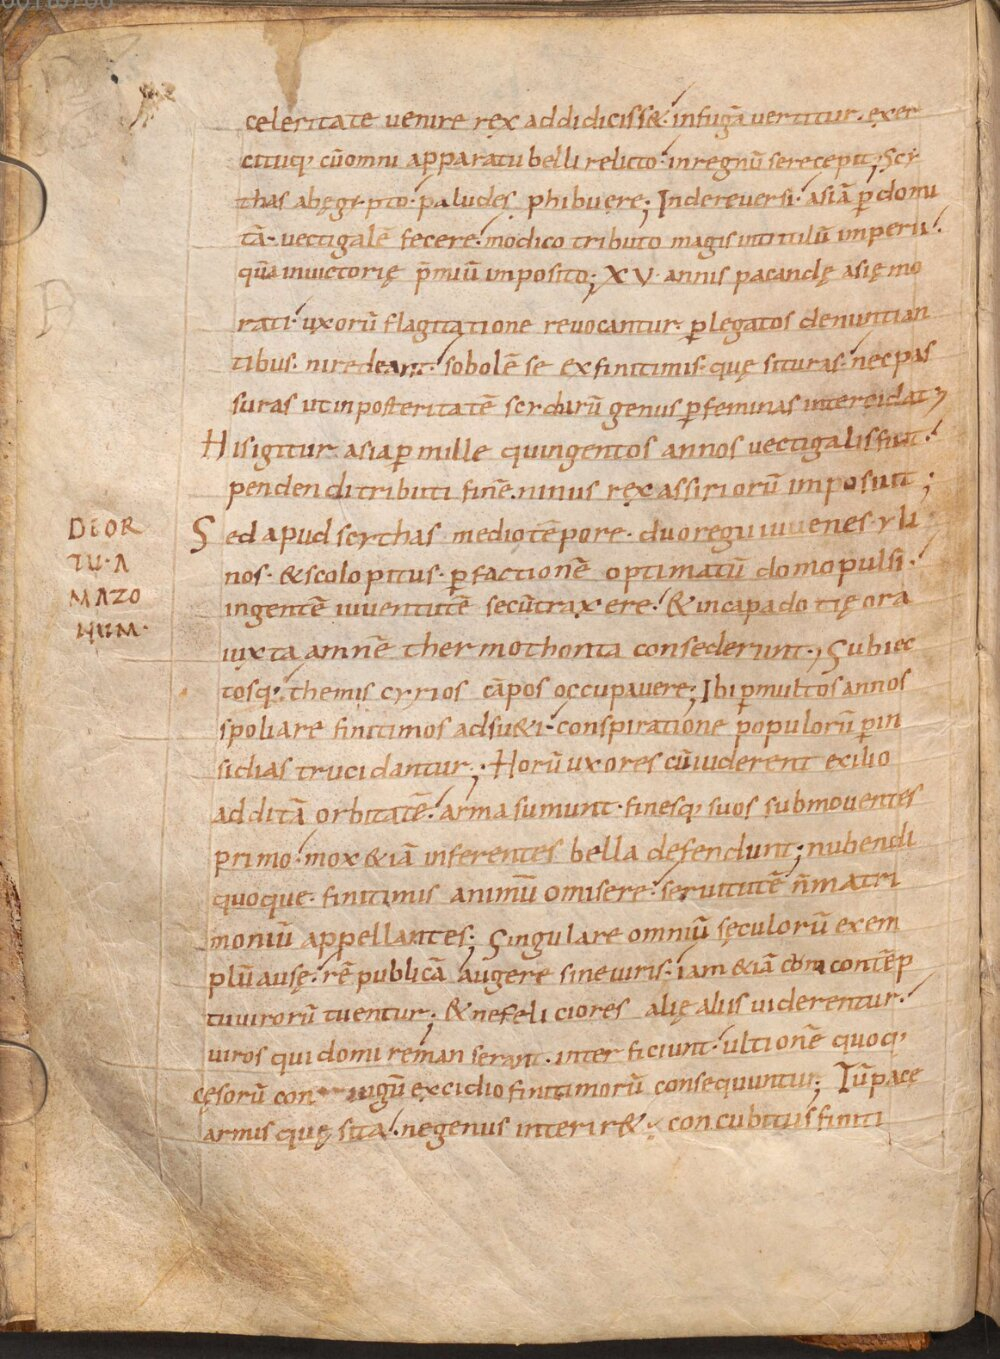 celeritate venire rex addidiciss&. infugā vertitur. exer
cituq; cū omni apparatu belli relicto. inregnū serecepit; Scy
thas abęgypto. paludes phibuere; Inde reversi. asiā p̄domi
tā. vectigalē fecere. modico tributo magis intitulū imperii.
quā invictorię p̄miū imposito; XV. annis pacandę asię mo
rati. uxorū flagitatione revocantur. p̄ legatos denuntian
tibus. niredeant. sobolē se exfinitimis. quę situras. nec pas
suras ut inposteritatē scytharū genus p̄ feminas intercidat;
His igitur asia p̄ mille quingentos annos vectigalis fuit.
pendendi tributi finē. ninus rex assiriorū imposuit;
Sed apud scythas medio tēpore. duo regii iuvenes. yli
DEOR
TU. A
MAZO
NUM.
nos. & scolopitus. p̄ factionē optimatū domo pulsi.
ingentē iuventutē secū traxere. & incapadotię ora
iuxta amnē thermothonta consederunt; Subiec
tosq; themis cyrios cāpos occupavere; Ibi p̄ multos annos
spoliare finitimos adsu&i. conspiratione populorū p̄ in
sidias trucidantur; Horū uxores cū viderent exilio
additā orbitatē. arma sumunt. finesq; suos submoventes
primo. mox &iā inferentes bella defendunt; nubendi
quoque. finitimis animū omisere. servitutē n̄ matri
moniū appellantes; Singulare omniū sęculorū exem
plū ausę. rē publicā augere sine viris. iam &iā com contēp
tu virorū tuentur; & ne feliciores alię aliis viderentur.
viros qui domi remanserant. interficiunt. ultionē quoq;
cęsorū con iugū excidio finitimorū consequuntur; Tū pace
armis quę sita. ne genus interir&; concubitus finiti